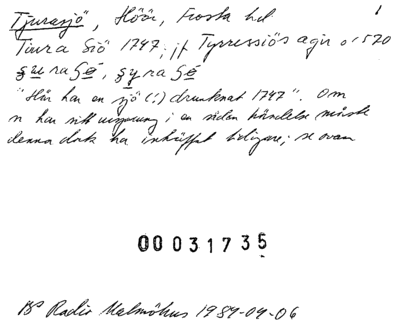 Tjurasjö, Höör, Frosta hd. 1
Tiura Siö 1747; jf Tyrressiös agir 01570
ʒɯraʂø, ʒyraʂø
"Här har en sjö (!) drunknat 1747". Om
n har sitt ursprung i en sådan händelse måste
denna dock ha inträffat tidigare; se ovan
00031735
BS Radio Malmöhus 1989-04-06